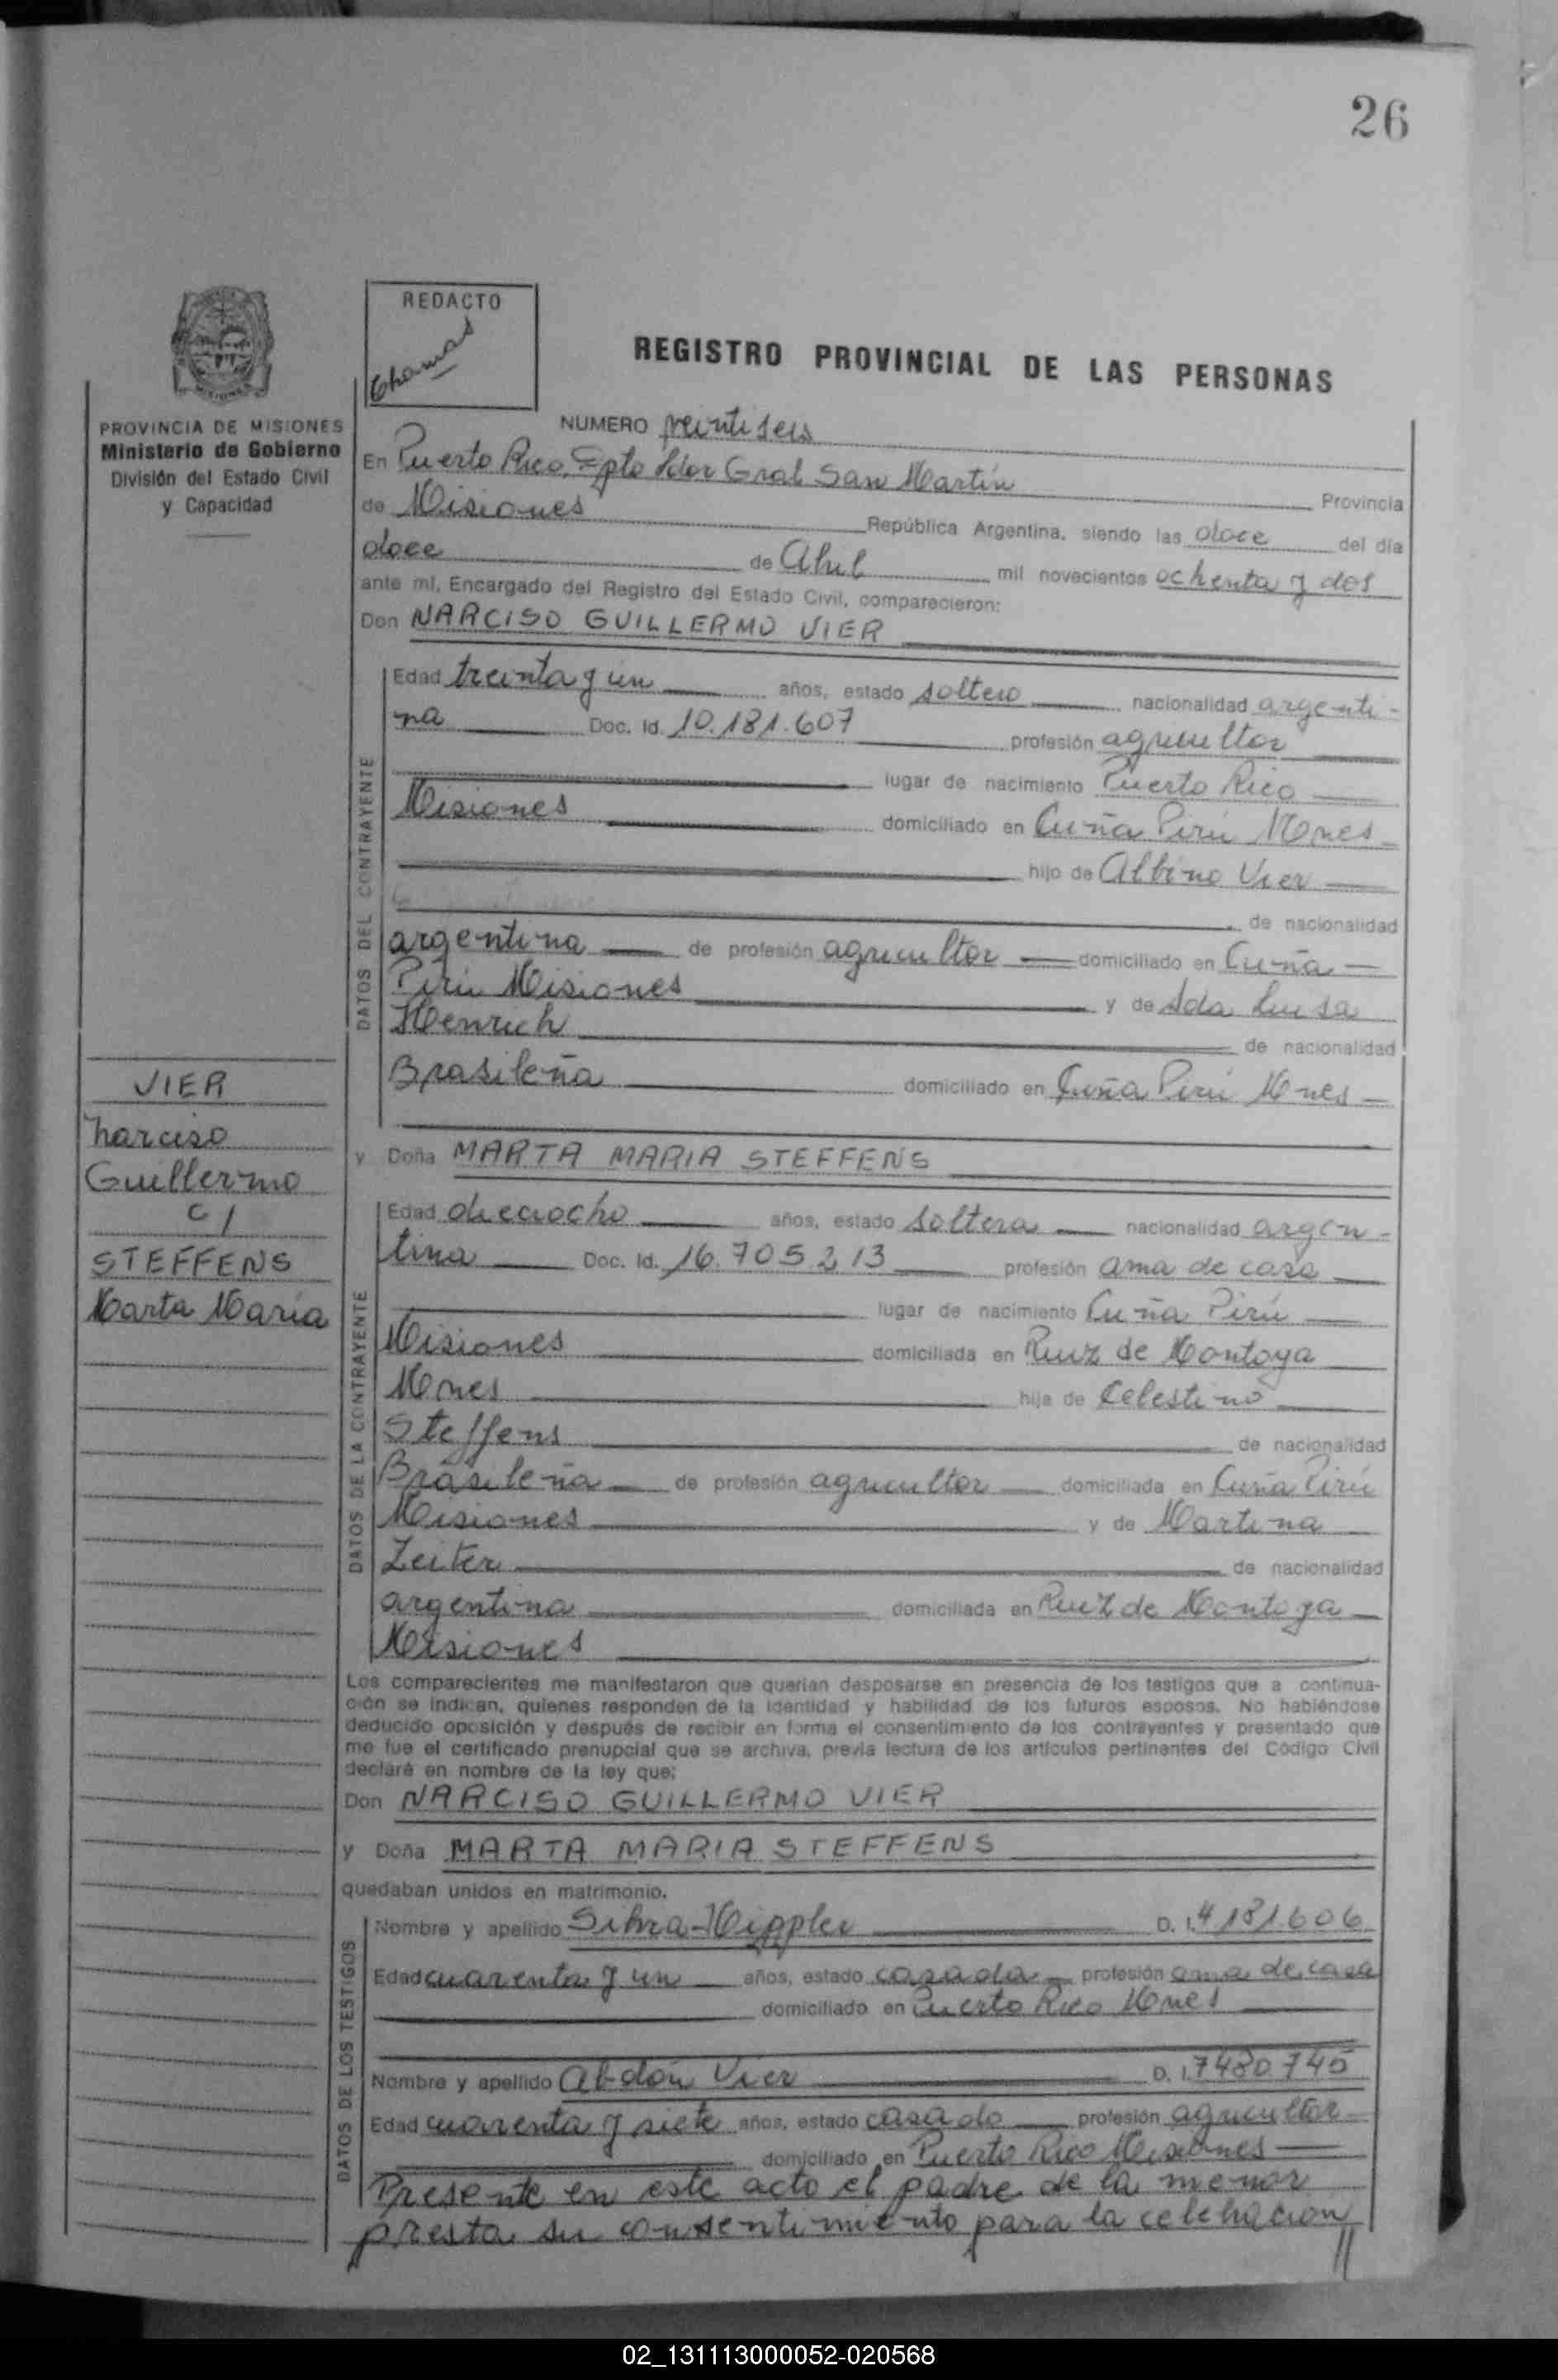 26
REDACTO
Chamas
REGISTRO PROVINCIAL DE LAS PERSONAS
PROVINCIA DE MISIONES
Ministerio de Gobierno
División del Estado Civil
y Capacidad
NUMERO veintiseis
En Puerto Rico, Dpto Ldor Gral San Martín Provincia
de Misiones República Argentina, siendo las doce del día
doce de Abril mil novecientos ochenta y dos
ante mí, Encargado del Registro del Estado Civil, comparecieron:
Don NARCISO GUILLERMO VIER
DATOS DEL CONTRAYENTE
Edad treinta y un años, estado soltero nacionalidad argenti-
na Doc. Id. 10.181.607 profesión agricultor
lugar de nacimiento Puerto Rico
Misiones domiciliado en Cuña Pirú Mnes
hijo de Albino Vier
de nacionalidad
argentina de profesión agricultor domiciliado en Cuña
Pirú Misiones y de Ada Luisa
Henrich de nacionalidad
Brasileña domiciliado en Cuña Pirú Mnes
VIER
Narciso
Guillermo
c/
STEFFENS
Marta María
y Doña MARTA MARIA STEFFENS
DATOS DE LA CONTRAYENTE
Edad dieciocho años, estado soltera nacionalidad argen-
tina Doc. Id. 16.705.213 profesión ama de casa
lugar de nacimiento Cuña Pirú
Misiones domiciliada en Ruiz de Montoya
Mnes hija de Celestino
Steffens de nacionalidad
Brasileña de profesión agricultor domiciliada en Cuña Pirú
Misiones y de Martina
Zeiter de nacionalidad
argentina domiciliada en Ruiz de Montoya
Misiones
Los comparecientes me manifestaron que querían desposarse en presencia de los testigos que a continua-
ción se indican, quienes responden de la identidad y habilidad de los futuros esposos. No habiéndose
deducido oposición y después de recibir en forma el consentimiento de los contrayentes y presentado que
me fue el certificado prenupcial que se archiva, previa lectura de los artículos pertinentes del Código Civil
declaré en nombre de la ley que:
Don NARCISO GUILLERMO VIER
y Doña MARTA MARIA STEFFENS
quedaban unidos en matrimonio.
DATOS DE LOS TESTIGOS
Nombre y apellido Hippler D. I. 4181606
Edad cuarenta y un años, estado casada profesión ama de casa
domiciliado en Puerto Rico Mnes
Nombre y apellido Abdón Vier D. I. 7480745
Edad cuarenta y siete años, estado casado profesión agricultor
domiciliado en Puerto Rico Misiones
Presente en este acto el padre de la menor
presta su consentimiento para la celebración
//
02_131113000052-020568